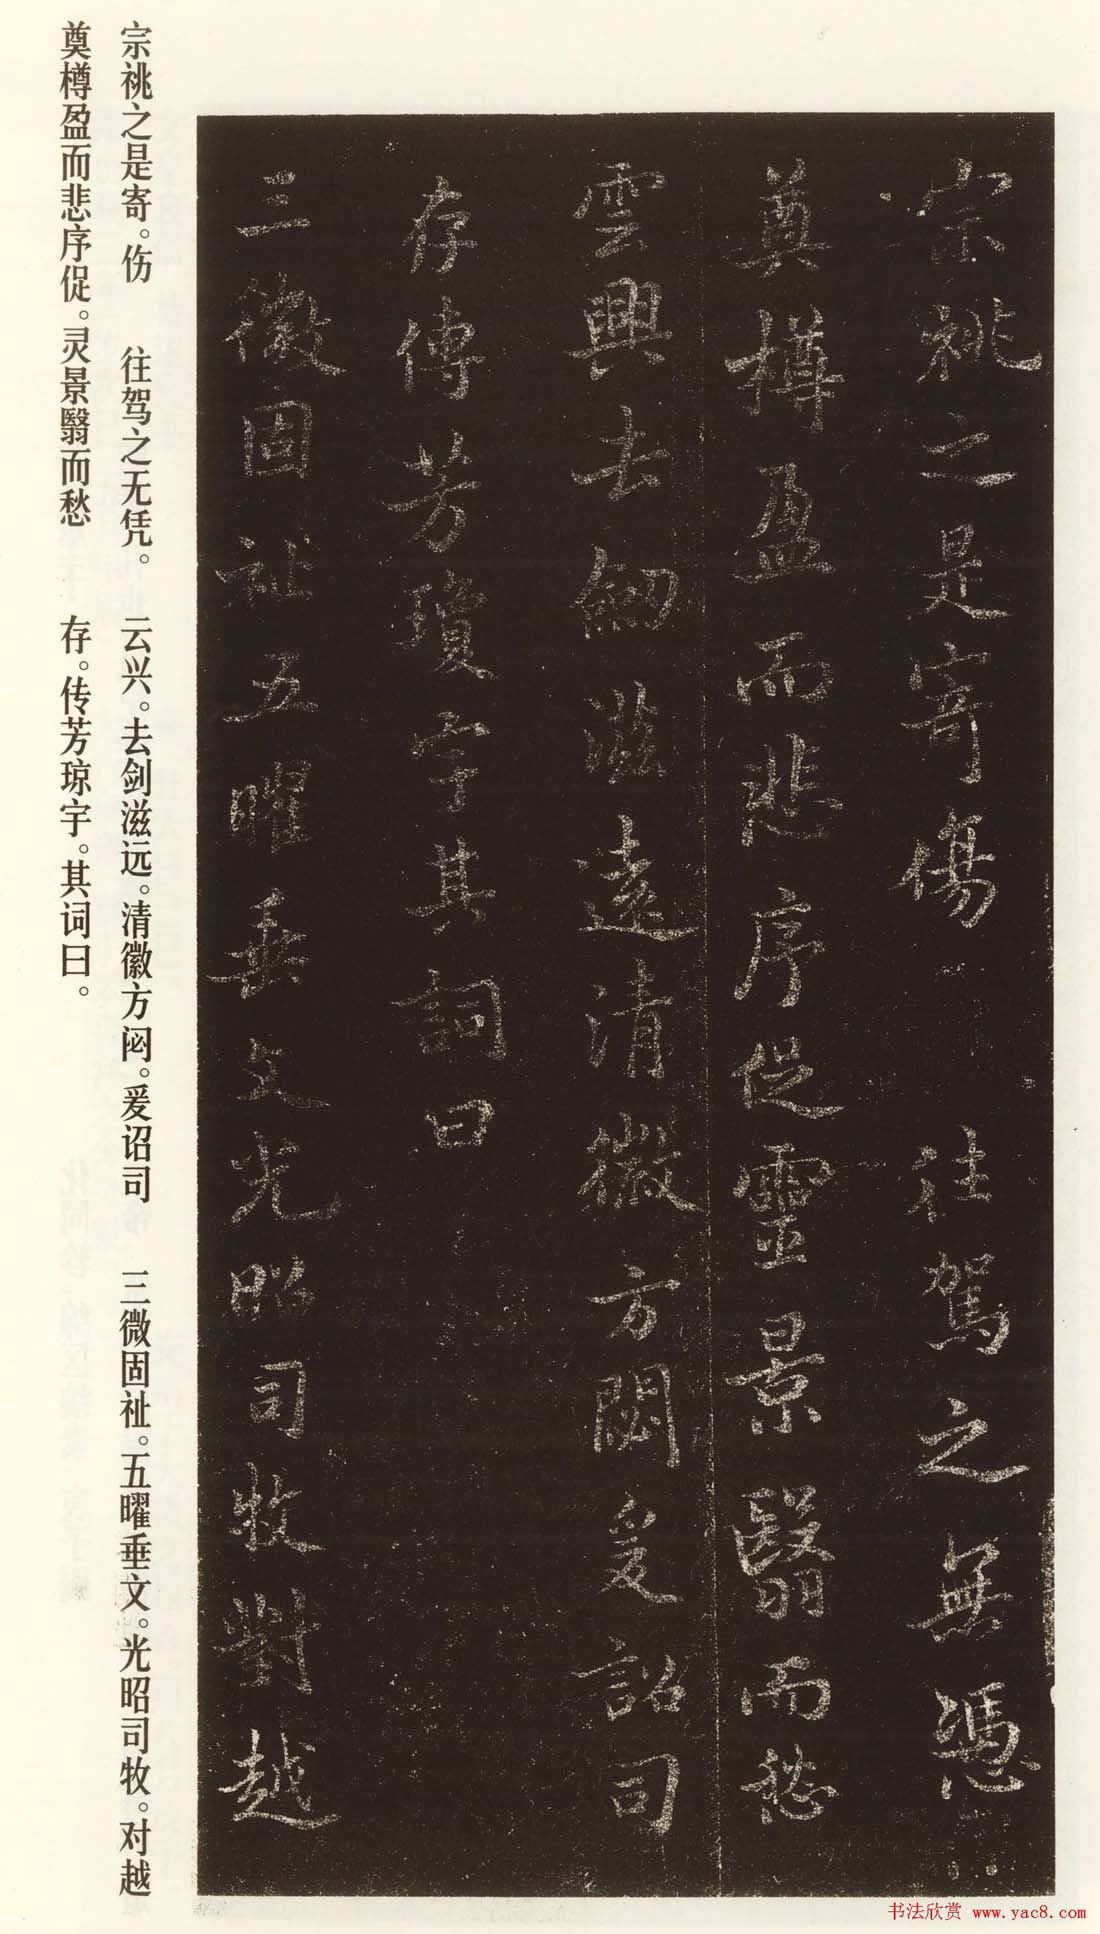 宗祧之是寄傷 往駕之無憑
奠樽盈而悲序促靈景翳而愁
雲興去劒滋遠清徽方閟爰詔司
存傳芳瓊宇其詞曰
三微固祉五曜垂文光昭司牧對越
宗祧之是寄。伤 往驾之无凭。 云兴。去剑滋远。清徽方闷。爰诏司 三微固祉。五曜垂文。光昭司牧。对越
奠樽盈而悲序促。灵景翳而愁 存。传芳琼宇。其词曰。
书法欣赏 www.yac8.com